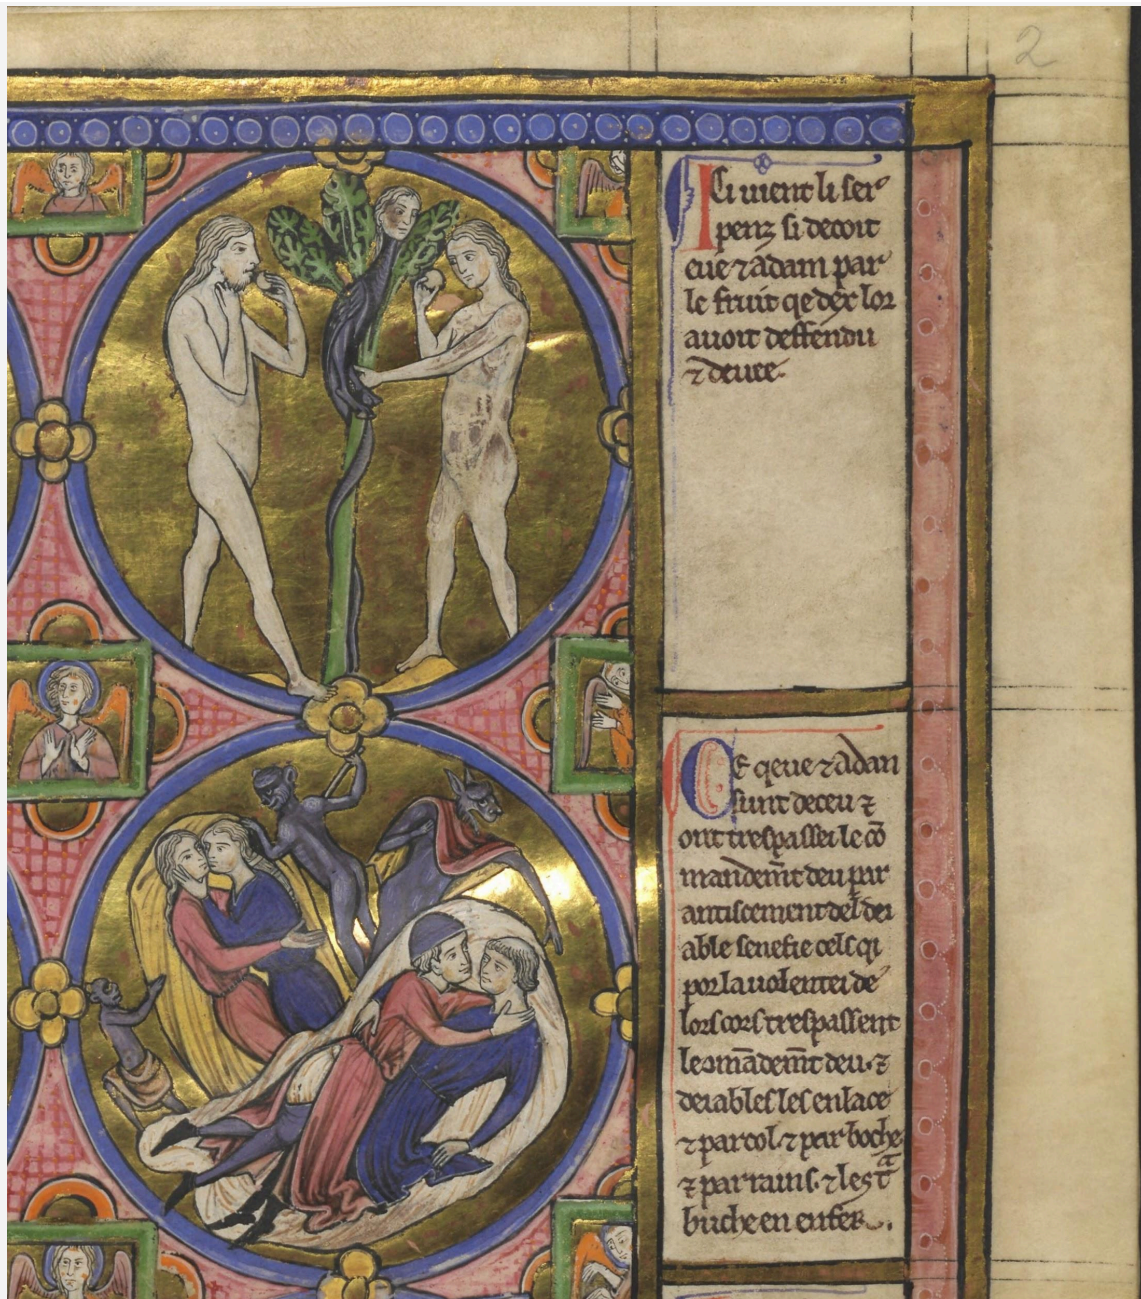 2
Ici uient li ser
penz si decoit
eue ⁊ adam par
le fruit qe dex lor
auoit deffendu
⁊ deuee.
Ce qeue ⁊ adan
sunt deceu ⁊
ont trespassei le cō
mandem̄t deu par
anticement del dei
able senefie cels qi
por la uolentei de
lors cors trespassent
le comādem̄t deu. ⁊
deiables les enlace
⁊ par col. ⁊ par boche
⁊ par rains. ⁊ les t
buche en enfer.